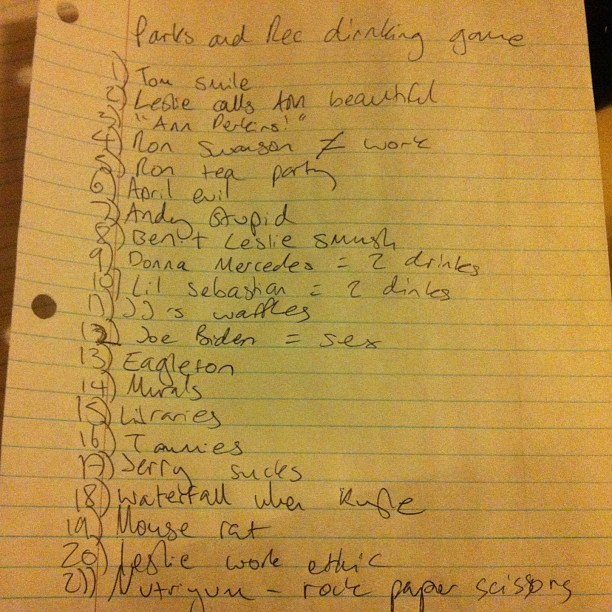 Parks and Rec dirnking game
1) Tom smile
2) Leslie calls Ann beautiful
3) "Ann Perkins!"
4) Ron Swanson ≠ work
5) Ron tea party
6) April evil
7) Andy stupid
8) Ben + Leslie smush
9) Donna Mercedes = 2 drinks
10) Lil Sebastian = 2 dinks
11) JJ's waffles
12) Joe Biden = sex
13) Eagleton
14) Murals
15) Libraries
16) Tammies
17) Jerry sucks
18) Waterfall when
19) Mouse rat
20) Leslie work ethic
21) Nutriyum - rock paper scissors